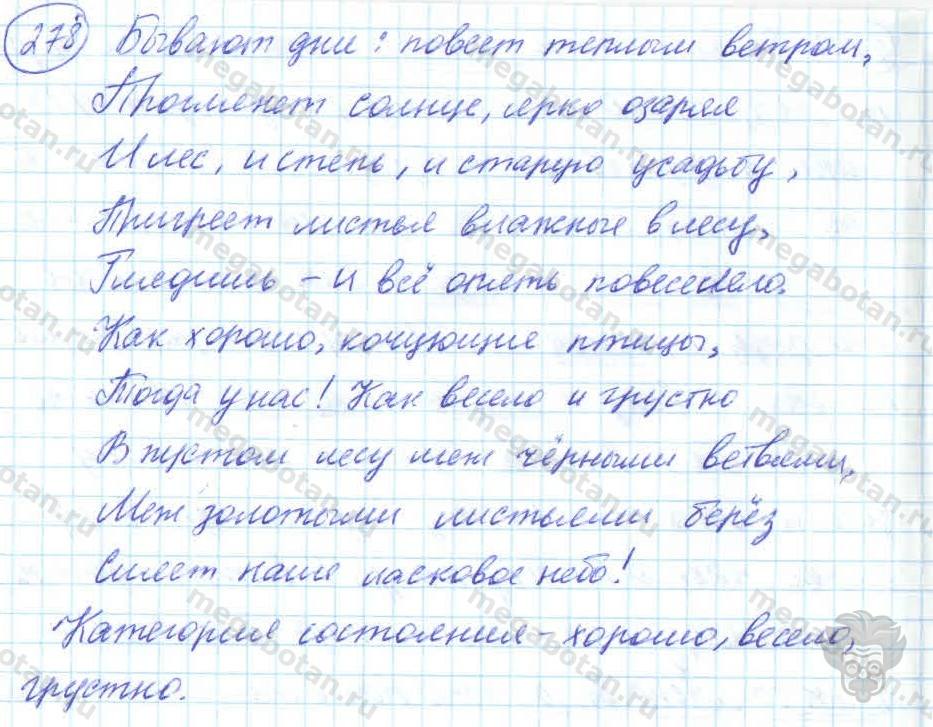 278 Бывают дни: повеет теплым ветром,
Проглянет солнце, ярко озаряя
И лес, и степь, и старую усадьбу,
Пригреет листья влажные в лесу,
Глядишь – и всё опять повеселело.
Как хорошо, кочующие птицы,
Тогда у нас! Как весело и грустно
В пустом лесу меж чёрными ветвями,
Меж золотыми листьями берёз
Синеет наше ласковое небо!
Категория состояния - хорошо, весело,
грустно.
megabotan.ru